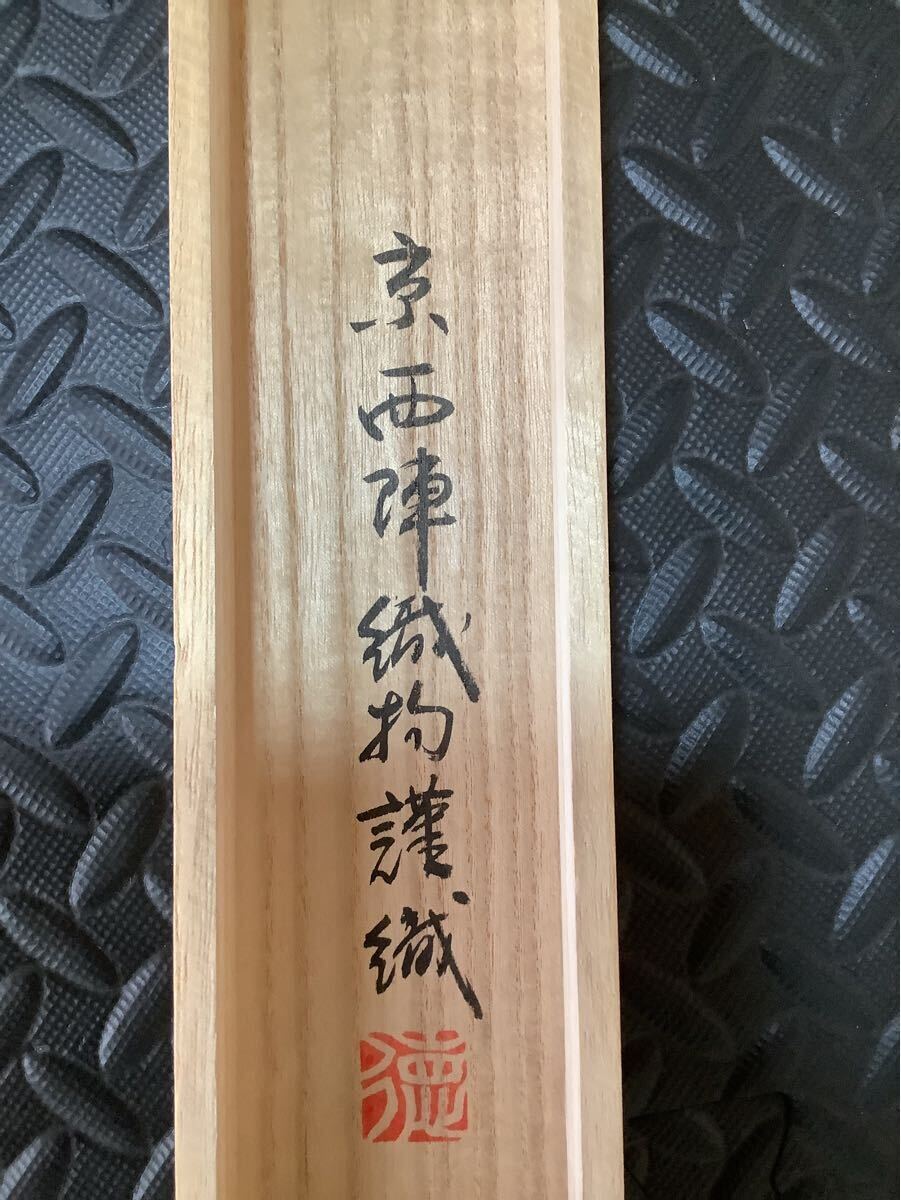 京西陣織物謹織
徳